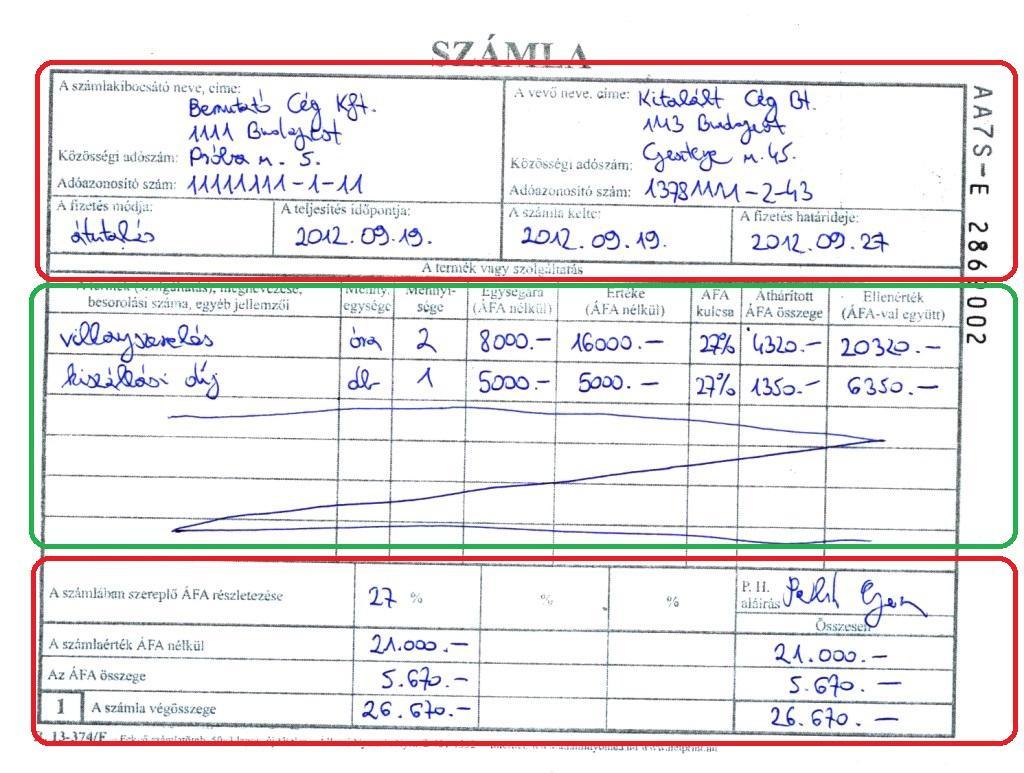 SZÁMLA
A számlakibocsátó neve, címe:
Bemutató Cég Kft.
1111 Budapest
Közösségi adószám: Próba u. 5.
Adóazonosító szám: 11111111-1-11
A vevő neve, címe: Kitalált Cég Bt.
1113 Budapest
Közösségi adószám: Gesztenye u. 45.
Adóazonosító szám: 13781111-2-43
A fizetés módja: A teljesítés időpontja: A számla kelte: A fizetés határideje:
átutalás 2012.09.19. 2012.09.19. 2012.09.27
AA7S-E 286 002
A termék vagy szolgáltatás
A termék (szolgáltatás), megnevezése, Menny. Mennyi- Egységára Értéke ÁFA Áthárított Ellenérték
besorolási száma, egyéb jellemzői egysége sége (ÁFA nélkül) (ÁFA nélkül) kulcsa ÁFA összege (ÁFA-val együtt)
villanyszerelés óra 2 8000.- 16000.- 27% 4320.- 20320.-
kiszállási díj db 1 5000.- 5000.- 27% 1350.- 6350.-
A számlában szereplő ÁFA részletezése 27 % % % P. H.
aláírás
Összesen
A számlaérték ÁFA nélkül 21.000.- 21.000.-
Az ÁFA összege 5.670.- 5.670.-
1 A számla végösszege 26.670.- 26.670.-
13-374/E